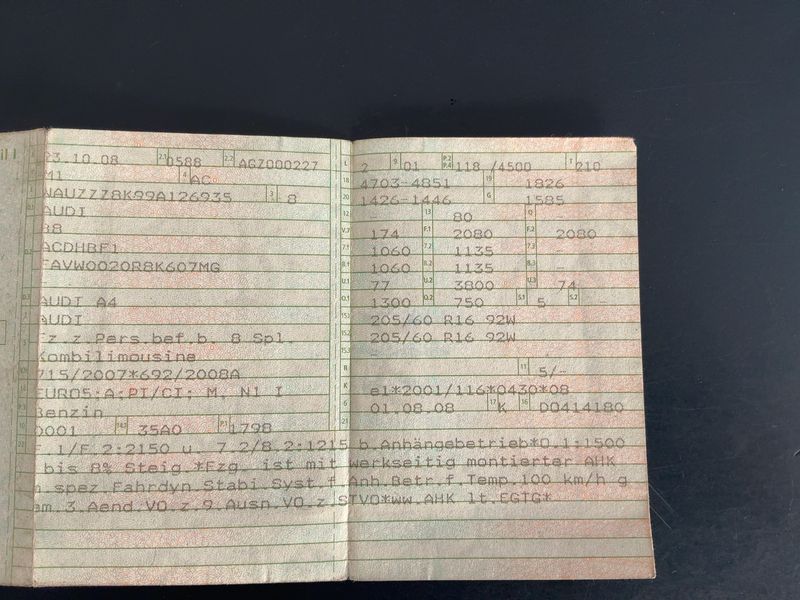 23.10.08 2.1 0588 2.2 AGZ000227
M1 4 AC
WAUZZZ8K99A126935 3 8
AUDI
B8
ACDHBF1
FAVW0020R8K607MG
-
AUDI A4
AUDI
Fz.z.Pers.bef.b. 8 Spl.
Kombilimousine
715/2007*692/2008A
EURO5;A;PI/CI; M, N1 I
Benzin
0001 14.1 35A0 P.1 1798
L 2 9 01 P.2 P.4 118 /4500 T 210
18 4703-4851 19 1826
20 1426-1446 G 1585
12 - 13 80 Q -
V.7 174 F.1 2080 F.2 2080
7.1 1060 7.2 1135 7.3 -
8.1 1060 8.2 1135 8.3 -
U.1 77 U.2 3800 U.3 74
O.1 1300 O.2 750 S.1 5 S.2 -
15.1 205/60 R16 92W
15.2 205/60 R16 92W
15.3 -
R - 11 5/-
K e1*2001/116*0430*08
6 01.08.08 17 K 16 DO414180
21
22 F.1/F.2:2150 u. 7.2/8.2:1215 b.Anhängebetrieb*O.1:1500
bis 8% Steig.*Fzg. ist mit werkseitig montierter AHK
m.spez.Fahrdyn Stabi.Syst.f.Anh.Betr.f.Temp.100 km/h g
em.3.Aend.VO.z.9.Ausn.VO.z.STVO*ww.AHK lt.EGTG*